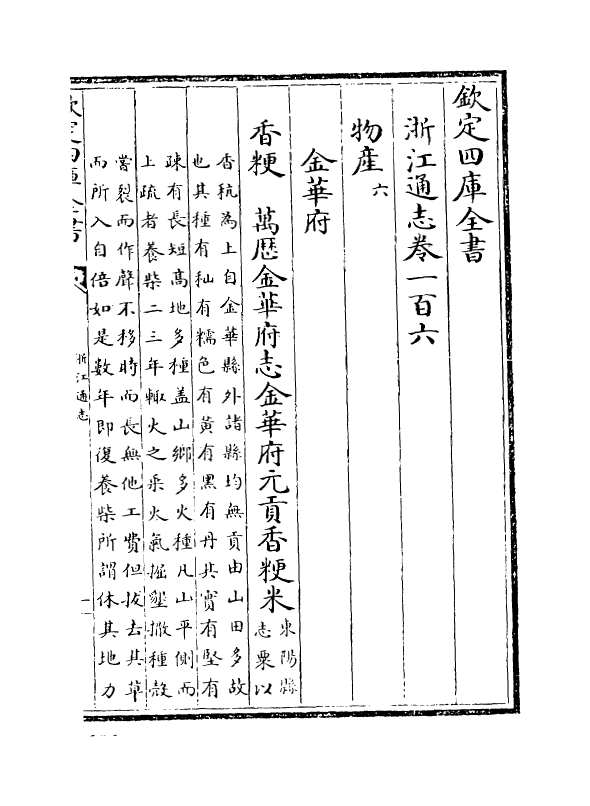 欽定四庫全書
浙江通志卷一百六
物産六
金華府
香粳　萬歴金華府志金華府元貢香粳米東陽縣
志粟以
香秔為上自金華縣外諸縣均無貢由山田多故
也其種有秈有糯色有黃有黑有丹其實有堅有
疎有長短高地多種盖山鄉多火種凡山平側而
上疏者養柴二三年輙火之乘火氣掘撒種殼
嘗裂而作聲不移時而長無他工費但拔去其草
而所入自倍如是數年即復養柴所謂休其地力
欽定四庫全書
浙江通志